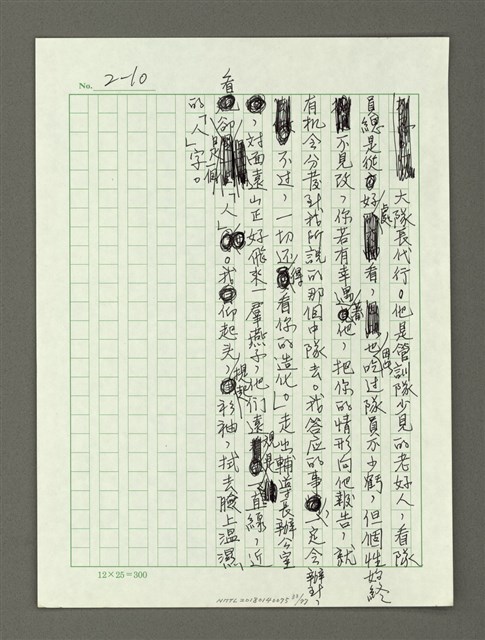 No. 2-10
大隊長代行。他是管訓隊少見的老好人，看隊
員總是從好處看，也吃过隊員不少虧，但個性始終
不見改，你若有幸遇着他，把你的情形向他報告，就
有机会分發到我所說的那個中隊去。我答应的事，一定会辦到，
不过，一切还得看你的造化。」走出輔導長辦公室
，对面遠山正好飛來一羣燕子，他们遠視是一直線，近
看卻是一個「人」。我仰起头，提起衫袖，拭去臉上溫濕
的「人」字。
12×25=300
NMTL20180140035